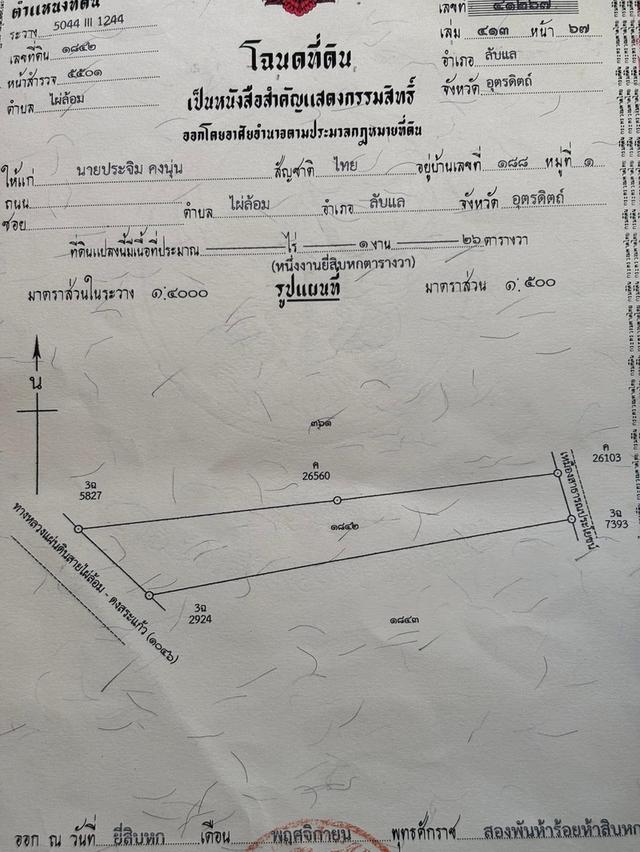 ตำแหน่งที่ดิน
ระวาง 5044 III 1244
เลขที่ดิน ๑๘๔๒
หน้าสำรวจ ๕๕๐๑
ตำบล ไผ่ล้อม
เลขที่ ๔๑๒๖๗
เล่ม ๔๑๓ หน้า ๖๗
อำเภอ ลับแล
จังหวัด อุตรดิตถ์
โฉนดที่ดิน
เป็นหนังสือสำคัญแสดงกรรมสิทธิ์
ออกโดยอาศัยอำนาจตามประมวลกฎหมายที่ดิน
ให้แก่ นายประจิม คงนุ่น สัญชาติ ไทย อยู่บ้านเลขที่ ๑๘๘ หมู่ที่ ๑
ถนน
ซอย ตำบล ไผ่ล้อม อำเภอ ลับแล จังหวัด อุตรดิตถ์
ที่ดินแปลงนี้มีเนื้อที่ประมาณ ไร่ ๑ งาน ๒๖ ตารางวา
(หนึ่งงานยี่สิบหกตารางวา)
มาตราส่วนในระวาง ๑:๔๐๐๐ รูปแผนที่ มาตราส่วน ๑:๕๐๐
น
๓๖๑
ค
26103
ค
26560
เหมืองสาธารณประโยชน์
3ฉ
5827
3ฉ
7393
๑๘๔๒
ทางหลวงแผ่นดินสายไผ่ล้อม - ดงสระแก้ว (๑๐๔๖)
3ฉ
2924
๑๘๔๓
ออก ณ วันที่ ยี่สิบหก เดือน พฤศจิกายน พุทธศักราช สองพันห้าร้อยห้าสิบหก